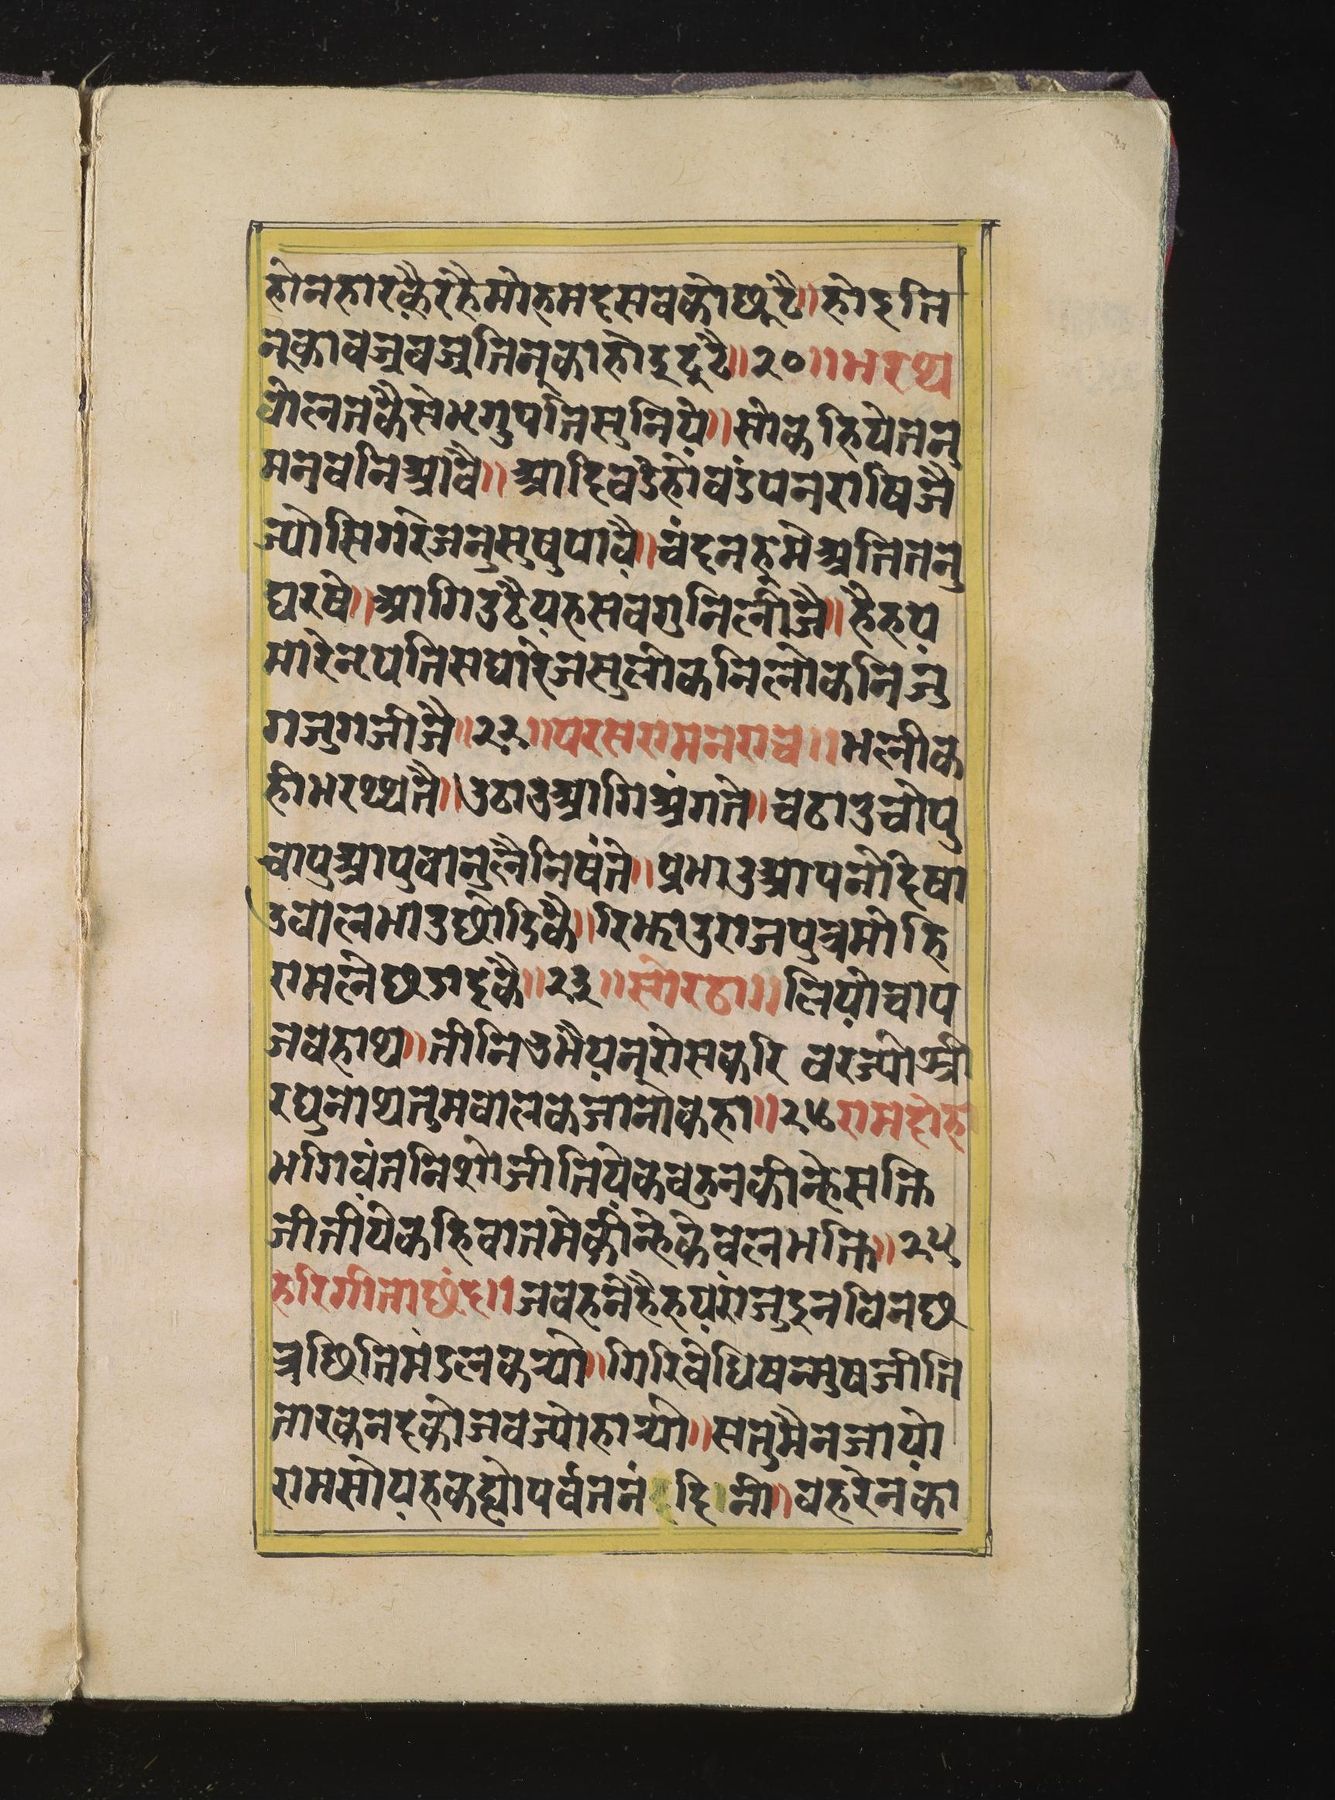 होनहारकैरहैमोहमदसबकोछूटै॥होइति
नूकाबज्रबज्रतिनूकाहोइटूटै॥२०॥भरथ
बोलतकैसेभृगुपतिसुनिये॥सोकहियेतन
मनबनिआवै॥आदिबडेहौबडपनराषिजै
ज्योसिगरेजनुसुषुपावै॥चंदनहूमेअतितनु
घरषे॥आगिउठैयहसबगुनिलीजै॥हैहय
मारेनृपतिसघारेजसुलोकनिलोकनिजु
गजुगजीजै॥२२॥परसरामनराच॥भलीक
हीभरथ्थतै॥उठाउआगिअंगते॥चठाउचोपु
चापुआपुबानुलैनिषंते॥प्रभाउआपनौदिषा
उबोलभाउछोडिकै॥रिझाउराजपुत्रमोहि
रामलेछडाइकै॥२३॥सोरठा॥लियोचाप
जबहाथ॥तीनिउभैयनरोसकरि बरज्योश्री
रघुनाथतुमबालकजानोकहा॥२४रामदोहा
भगिवंतनिशोजीतियेकबहुनकीन्हेसक्ति
जीतीयेकहिबातमेकीन्हेकेवलभक्ति॥२५
हरिगीताछंद॥जबहनेहैहयराजुइनबिनछ
त्रछितिमंडलकर्‌यो॥गिरिबेधिषन्मुषजीति
तारकनंदकोजबज्योहार्‌यो॥सतुमैनजायो
रामसोयहकह्योपर्वतनंदिनी॥वहरेनका